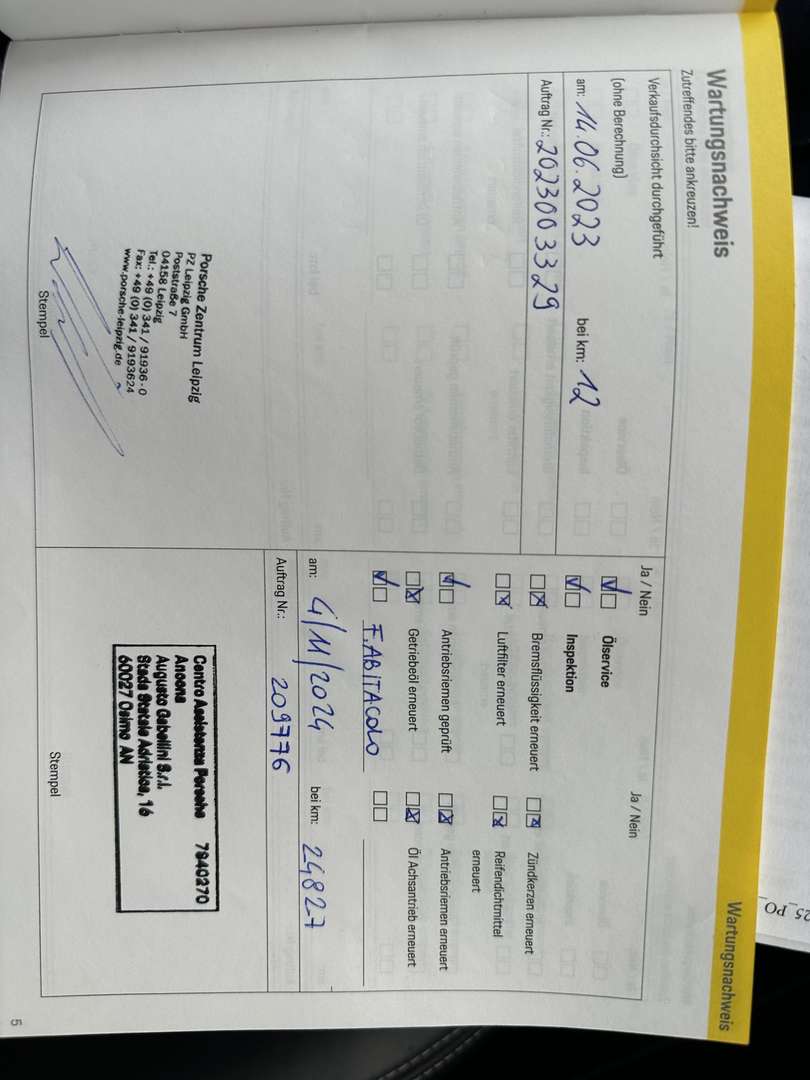 Wartungsnachweis
Wartungsnachweis
Zutreffendes bitte ankreuzen!
Verkaufsdurchsicht durchgeführt
(ohne Berechnung)
am: 14.06.2023 bei km: 12
Auftrag Nr.: 2023003329
Porsche Zentrum Leipzig
PZ Leipzig GmbH
Poststraße 7
04158 Leipzig
Tel.: +49 (0) 341 / 91936-0
Fax: +49 (0) 341 / 9193624
www.porsche-leipzig.de
Stempel
Ja / Nein Ja / Nein
Ölservice
Inspektion
Bremsflüssigkeit erneuert Zündkerzen erneuert
Luftfilter erneuert Reifendichtmittel
erneuert
Antriebsriemen geprüft Antriebsriemen erneuert
Getriebeöl erneuert Öl Achsantrieb erneuert
F. ABITACOLO
am: 4/11/2024 bei km: 24827
Auftrag Nr.: 209776
Centro Assistenza Porsche 7840270
Ancona
Augusto Gabellini S.r.l.
Stada Statale Adriatica, 16
60027 Osimo AN
Stempel
5